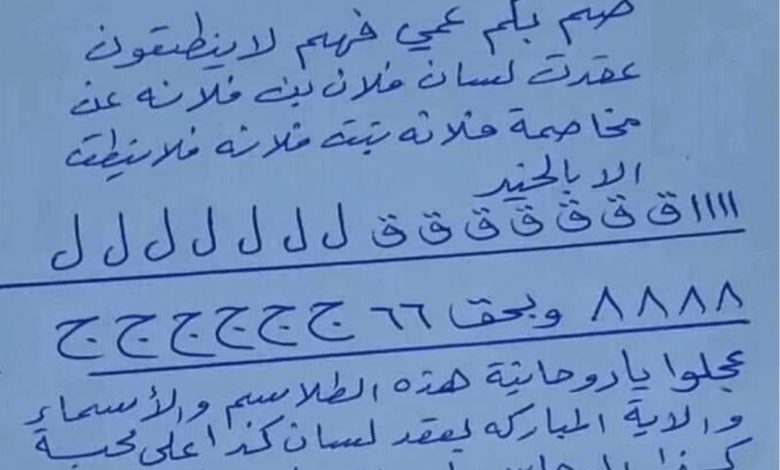 صم بكم عمي فهم لاينطقون
عقدت لسان فلان بن فلانه عن
مخاصمة فلانه بنت فلانه فلاينطق
الا بالخير
١١١١ ق ق ق ق ق ق ق ل ل ل ل ل ل ل
٨٨٨٨ وبحق ٦٦ ج ج ج ج ج ج ج
عجلوا ياروحانية هذه الطلاسم والأسماء
والاية المباركه بعقد لسان كذا على محبة